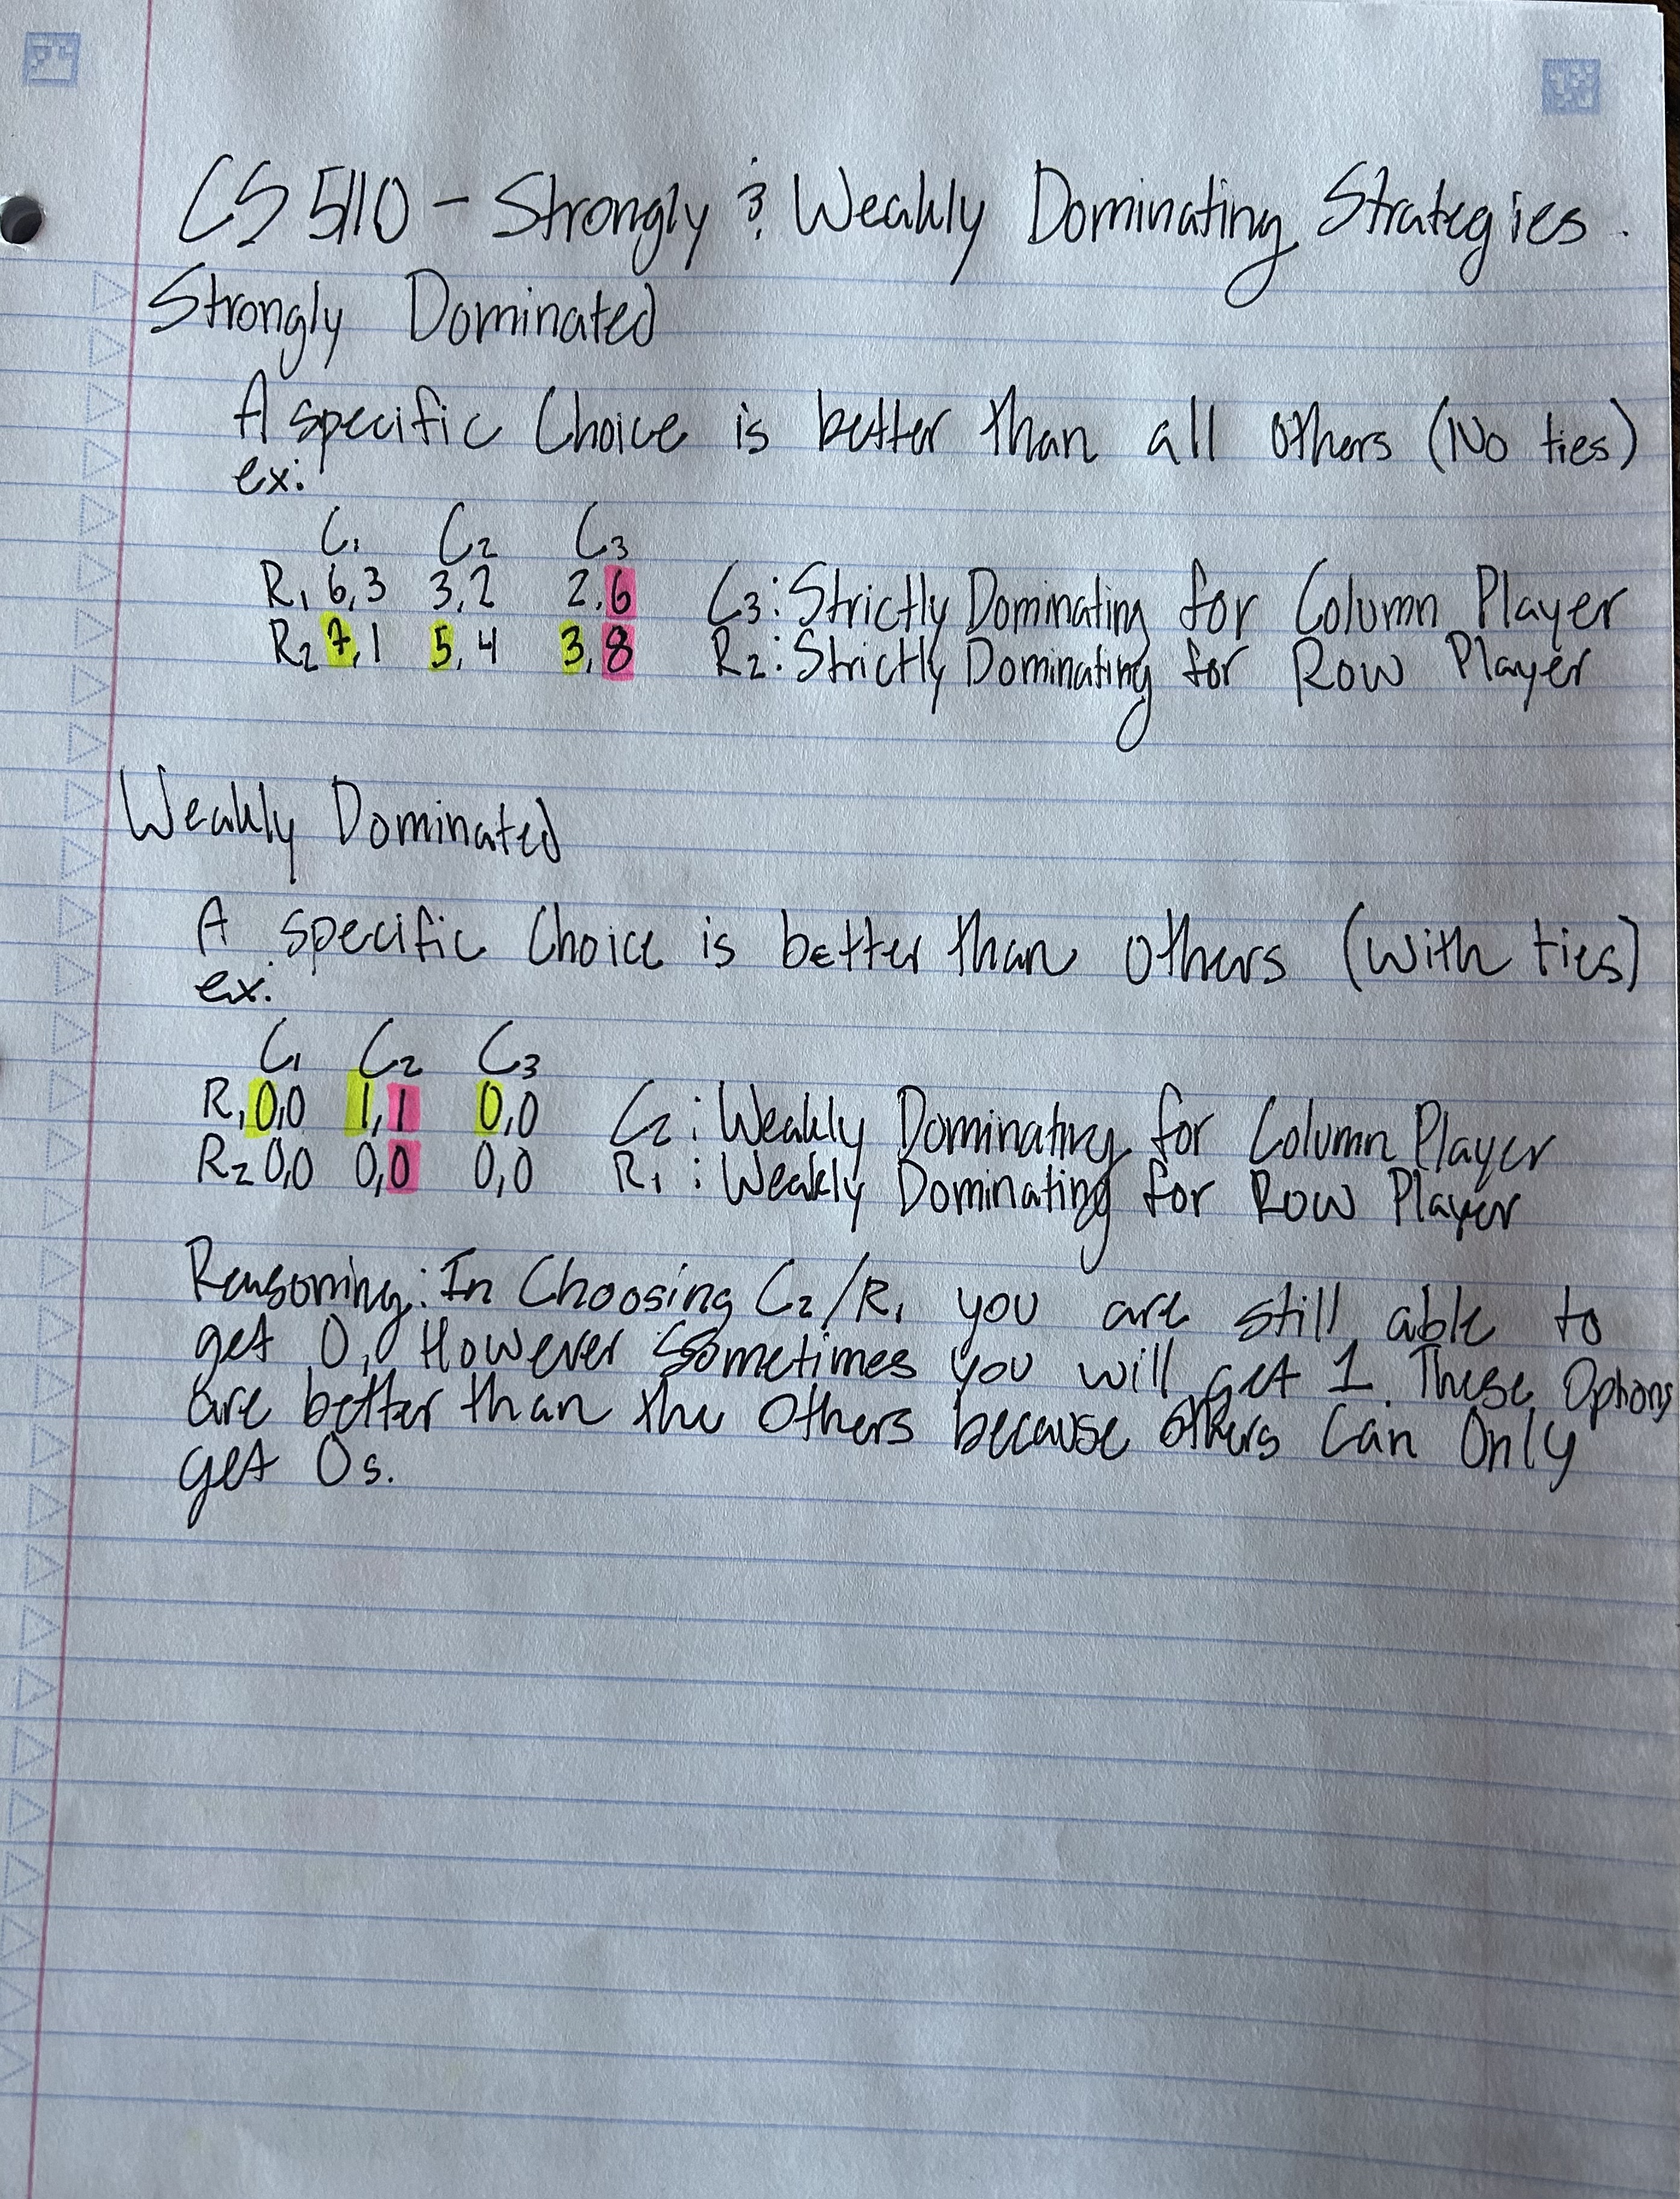 CS 5110 - Strongly & Weakly Dominating Strategies.
Strongly Dominated
A specific Choice is better than all others (No ties)
ex:
C₁ C₂ C₃
R₁ 6,3 3,2 2,6 C₃: Strictly Dominating for Column Player
R₂ 7,1 5,4 3,8 R₂: Strictly Dominating for Row Player
Weakly Dominated
A specific Choice is better than others (with ties)
ex:
C₁ C₂ C₃
R₁ 0,0 1,1 0,0 C₂: Weakly Dominating for Column Player
R₂ 0,0 0,0 0,0 R₁: Weakly Dominating for Row Player
Reasoning: In Choosing C₂/R₁ you are still able to
get 0,0 However Sometimes you will get 1. These Options
are better than the others because others Can Only
get 0s.